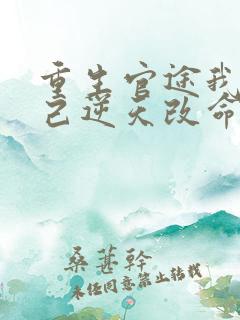 重生官途我
己逆天改命
桑葚幹
未经同意禁止转载